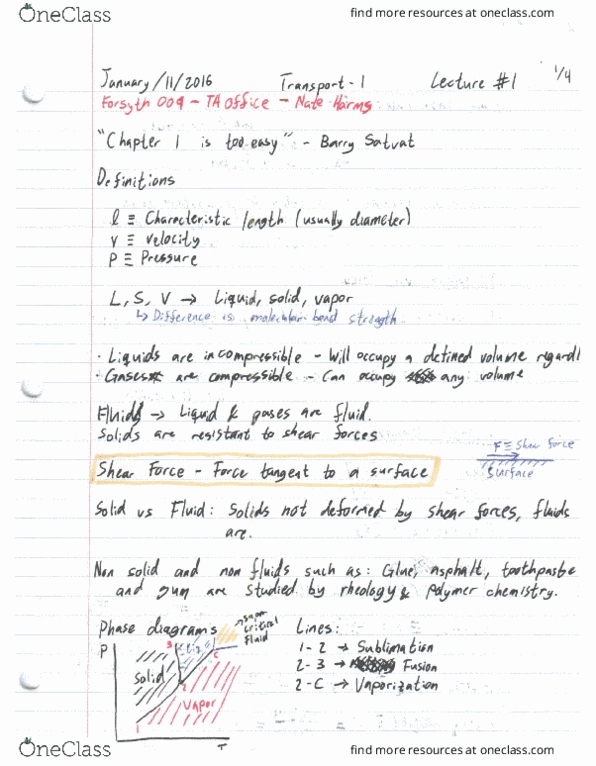 OneClass
find more resources at oneclass.com
January/11/2016 Transport-1 Lecture #1 1/4
Forsyth 009 - TA Office - Nate Harms
"Chapter 1 is too easy" - Barry Satvat
Definitions
l ≡ Characteristic length (usually diameter)
V ≡ velocity
P ≡ Pressure
L, S, V → Liquid, solid, vapor
↳ Difference is molecular bond strength
· Liquids are incompressible - Will occupy a defined volume regardl
· Gases are compressible - Can occupy any volume
Fluids → Liquid & gases are fluid.
Solids are resistant to shear forces
F ≡ Shear force
Surface
Shear Force - Force tangent to a surface
Solid vs Fluid: Solids not deformed by shear forces, fluids
are.
Non solid and non fluids such as: Glue, asphalt, toothpaste
and gum are studied by rheology & polymer chemistry.
Phase diagrams
super
critical
fluid
Lines:
P 3 Liq. C
1-2 → Sublimation
Solid
2-3 → Fusion
2
2-C → Vaporization
Vapor
1
T
OneClass
find more resources at oneclass.com